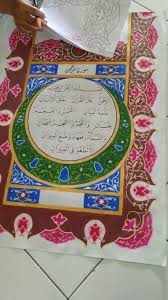 سورة الرحمن
بسم الله الرحمن الرحيم
الرحمن علم القرآن خلق الإنسان
علمه البيان الشمس والقمر
بحسبان والنجم والشجر يسجدان
والسماء رفعها ووضع الميزان
ألا تطغوا في الميزان